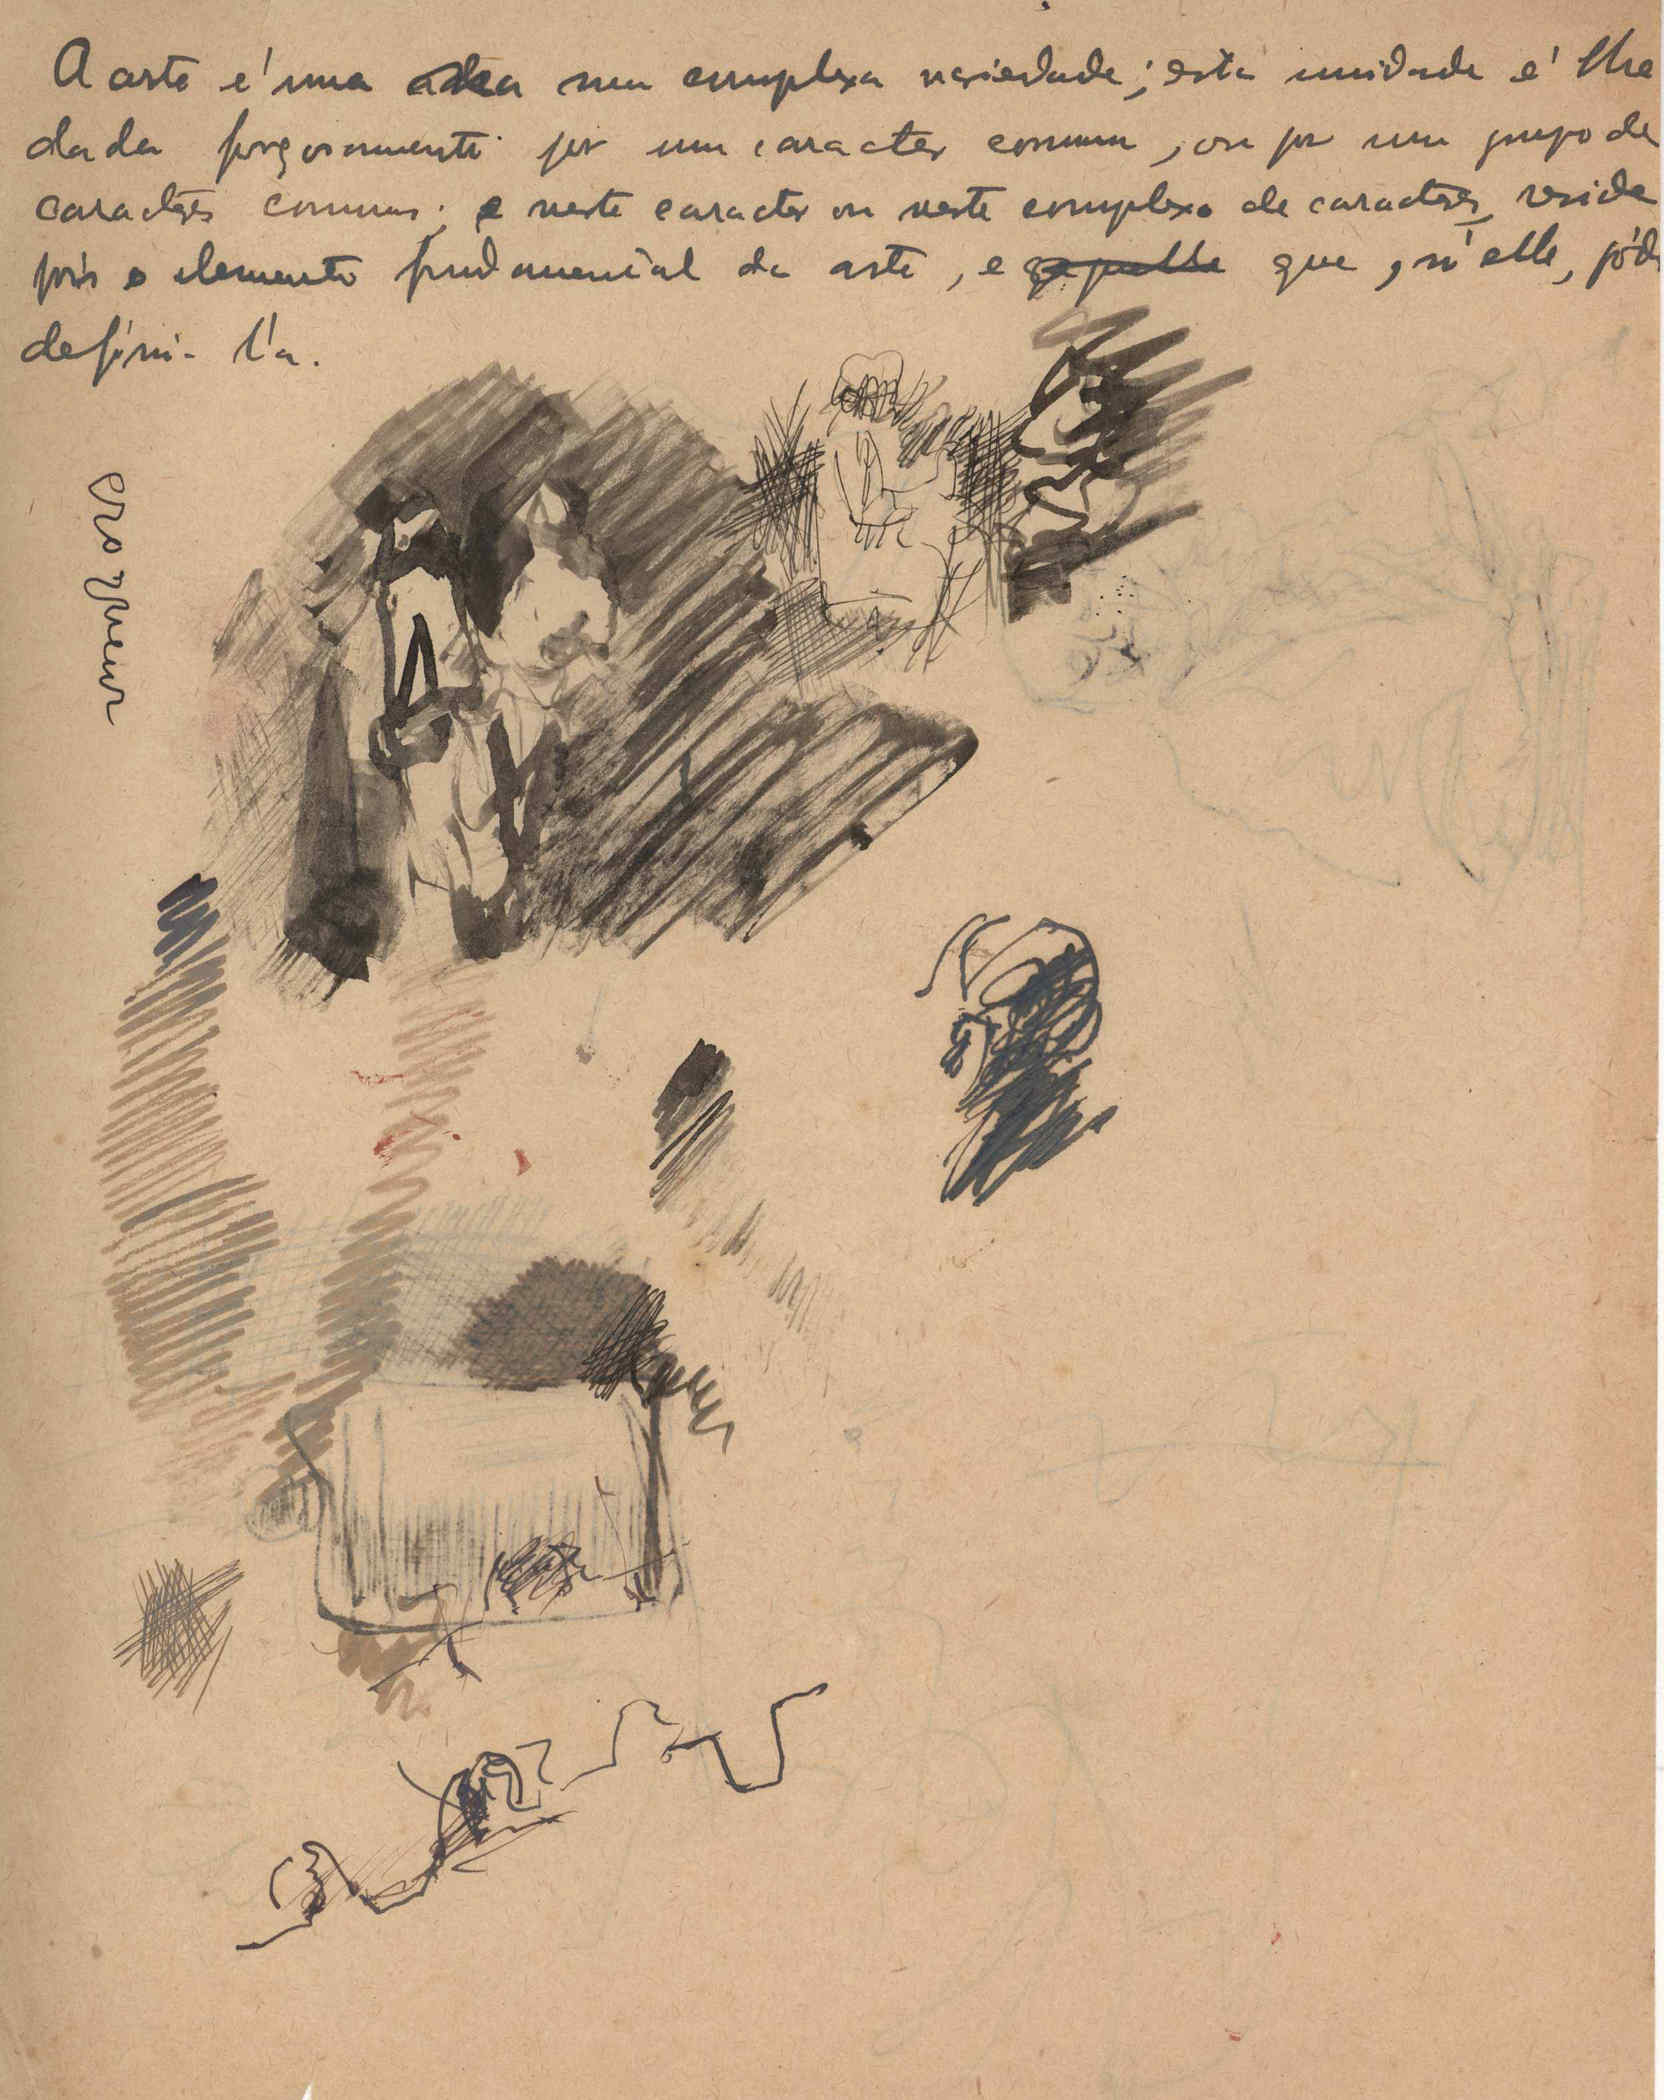 A arte é uma na complexa variedade; esta unidade é lhe
dada forçosamente por um caracter commum, ou por um grupo de
caractéres communs; e neste caracter ou neste complexo de caractéres, reside
pois o elemento fundamental da arte, e que, n'elle, póde
defini-l'a.
croqueur